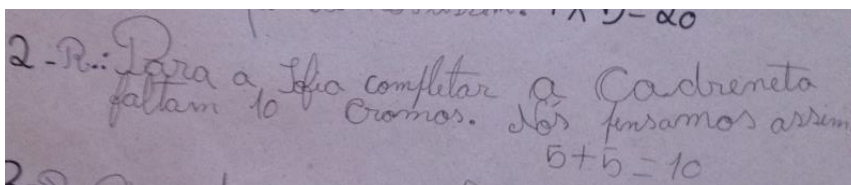 4 x 5 = 20
2-R.: Para a Sofia completar a Cadreneta
faltam 10 cromos. Nós pensamos assim
5+5=10